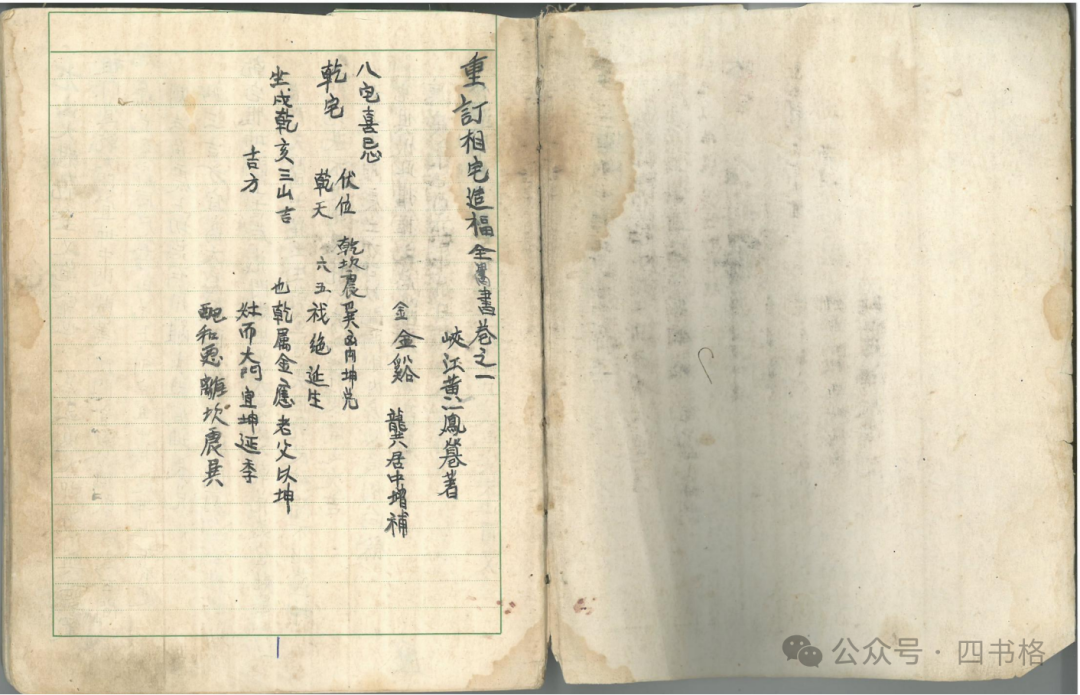 重訂相宅造福全書卷之一
峽江黃一鳳鼇著
金 金谿 龔居中增補
八宅喜忌
乾宅
伏位 乾坎震巽 坤兌
乾天 六五祸絶延生
坐戌乾亥三山吉
也乾属金應老父以坤
吉方
灶而大門宜坤延季
配和 離坎震巽
公众号 · 四书格